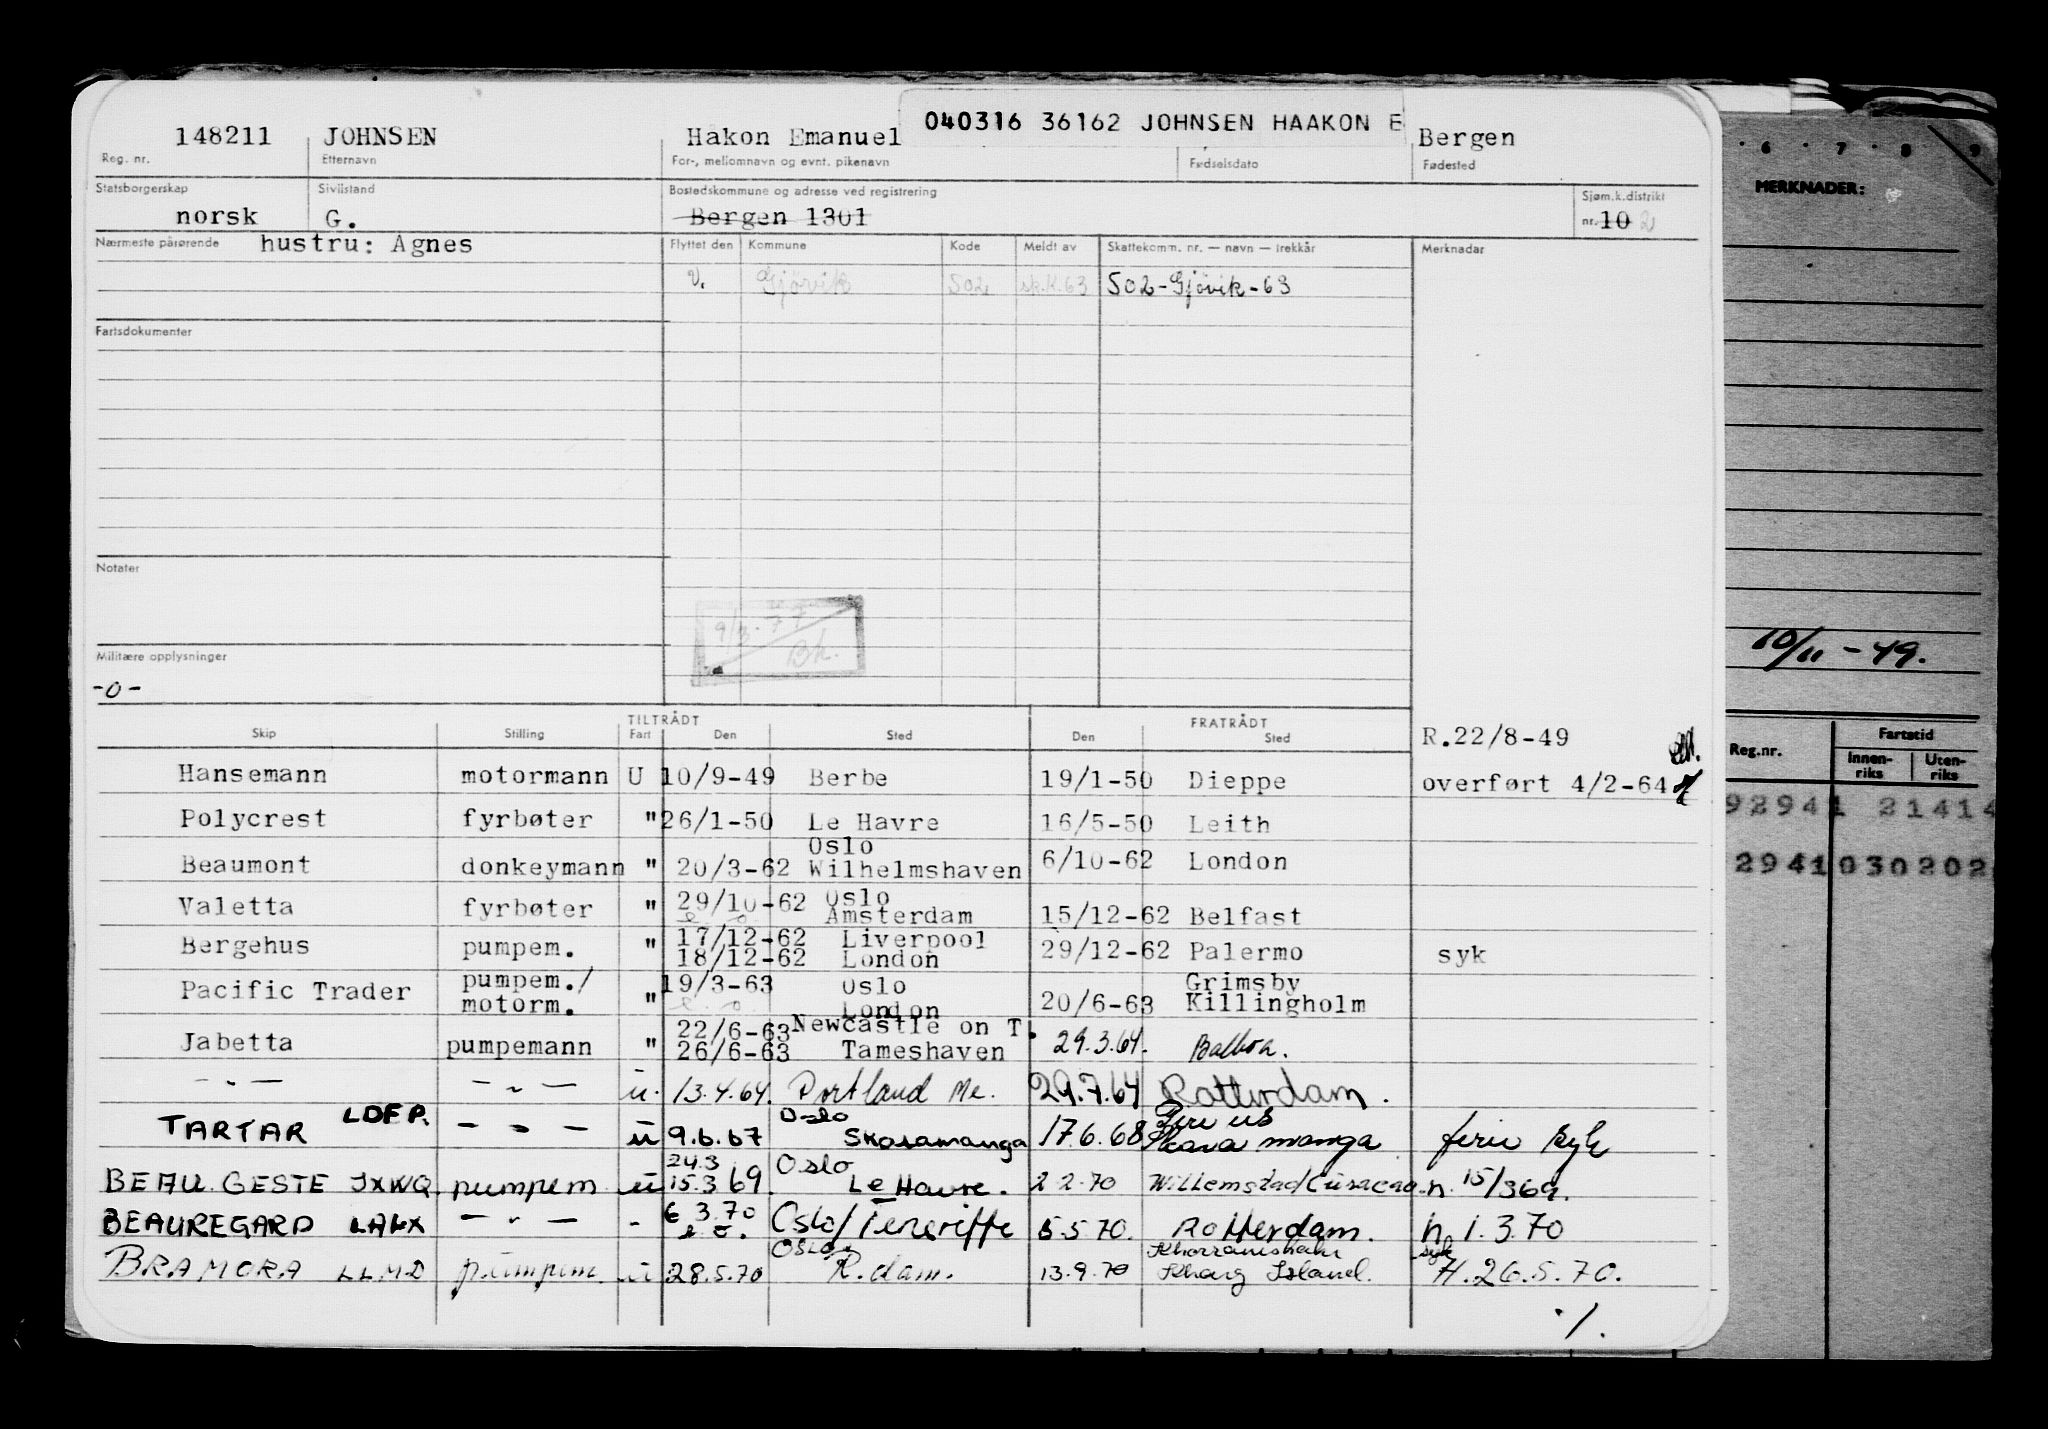 148211 JOHNSEN Håkon Emanuel 040316 36162 JOHNSEN HAAKON E Bergen
Reg. nr. Etternavn For-, mellomnavn og evnt. pikenavn Fødselsdato Fødested
Statsborgerskap Sivilstand Bostedskommune og adresse ved registrering Sjøm.k.distrikt
norsk G. Bergen 1301 nr. 10 2
Nærmeste pårørende hustru: Agnes Flyttet den Kommune Kode Meldt av Skattekomm. nr. — navn — trekkår Merknader
v. Gjövik 502 sk.k.63 502-Gjövik-63
Fartsdokumenter
Notater
9/3.77
Bh.
Militære opplysninger
-o-
TILTRÅDT FRATRÅDT
Skip Stilling Fart Den Sted Den Sted R.22/8-49
Hansemann motormann U 10/9-49 Berbe 19/1-50 Dieppe overført 4/2-64
Polycrest fyrbøter " 26/1-50 Le Havre 16/5-50 Leith
Oslo
Beaumont donkeymann " 20/3-62 Wilhelmshaven 6/10-62 London
Valetta fyrbøter " 29/10-62 Oslo
Amsterdam 15/12-62 Belfast
17/12-62 Liverpool
Bergehus pumpem. " 18/12-62 London 29/12-62 Palermo syk
pumpem./ 19/3-63 Oslo Grimsby
Pacific Trader motorm. " London 20/6-63 Killingholm
22/6-63 Newcastle on T.
Jabetta pumpemann " 26/6-63 Tameshaven 29.3.64. Balboa.
- " - - " - u. 13.4.64. Portland Me. 29.7.64 Rotterdam.
Oslo Pireus
TARTAR LDFP. - " - u 9.6.67 Skaramanga 17.6.68 Skaramanga ferie syk
24.3 Oslo
BEAU GESTE JXWQ pumpem u 15.3 69. Le Havre. 2 2.70 Willemstad/Curacao. n. 15/369.
BEAUREGARD LALX - " - - 6 3.70 Oslo/Teneriffe 5.5 70. Rotterdam. n 1.3.70
e. o.
Oslo, Khorramshahr syk
BRAMORA LLMD pumpem. u 28.5.70 R.dam. 13.9.70 Kharg Island. H.26.5.70.
./.
6 7 8 9
MERKNADER:
10/11-49.
Reg.nr. Fartstid
Innen-
riks Uten-
riks
92941 21414
2941030202